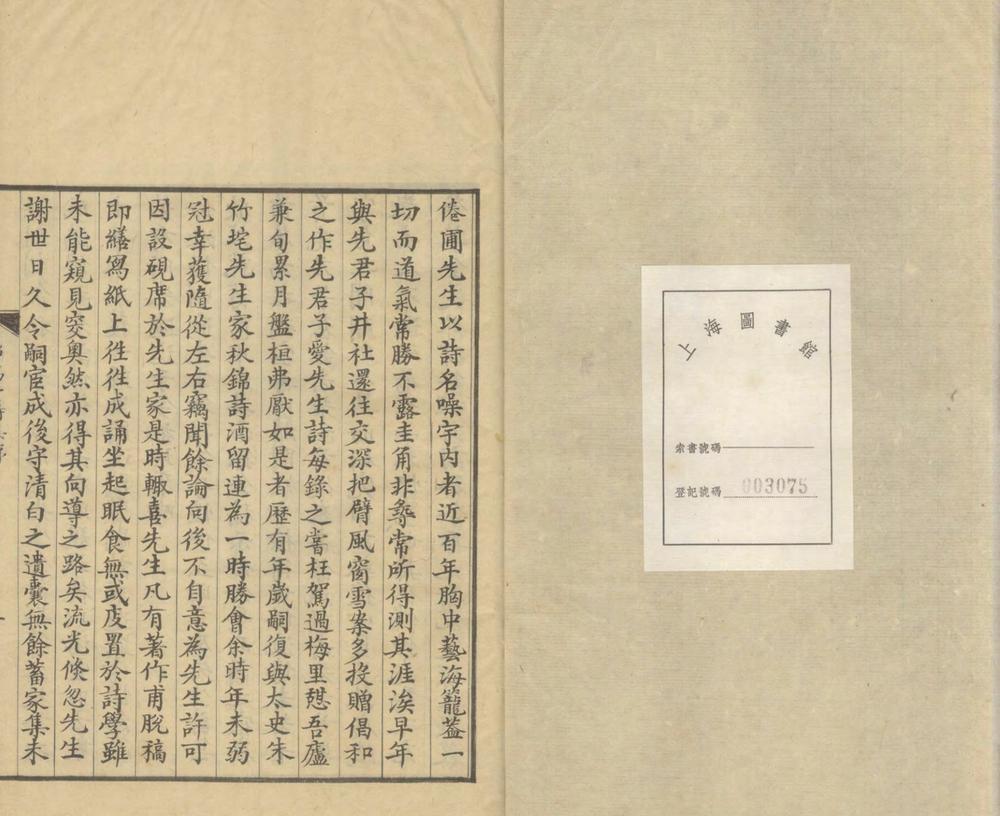 上海圖書館
索書號碼
登記號碼 003075
倦圃先生以詩名噪宇內者近百年胸中藝海籠蓋一
切而道氣常勝不露圭角非尋常所得測其涯涘早年
與先君子井社還往交深把臂風窗雪案多投贈倡和
之作先君子愛先生詩每錄之嘗枉駕過梅里憇吾廬
兼旬累月盤桓弗厭如是者歷有年歲嗣復與太史朱
竹垞先生家秋錦詩酒留連為一時勝會余時年未弱
冠幸獲隨從左右竊聞餘論向後不自意為先生許可
因設硯席於先生家是時輙喜先生凡有著作甫脫稿
即繕寫紙上徃徃成誦坐起眠食無或廢置於詩學雖
未能窺見突奧然亦得其向導之路矣流光倏忽先生
謝世日久令嗣宦成後守清白之遺囊無餘蓄家集未